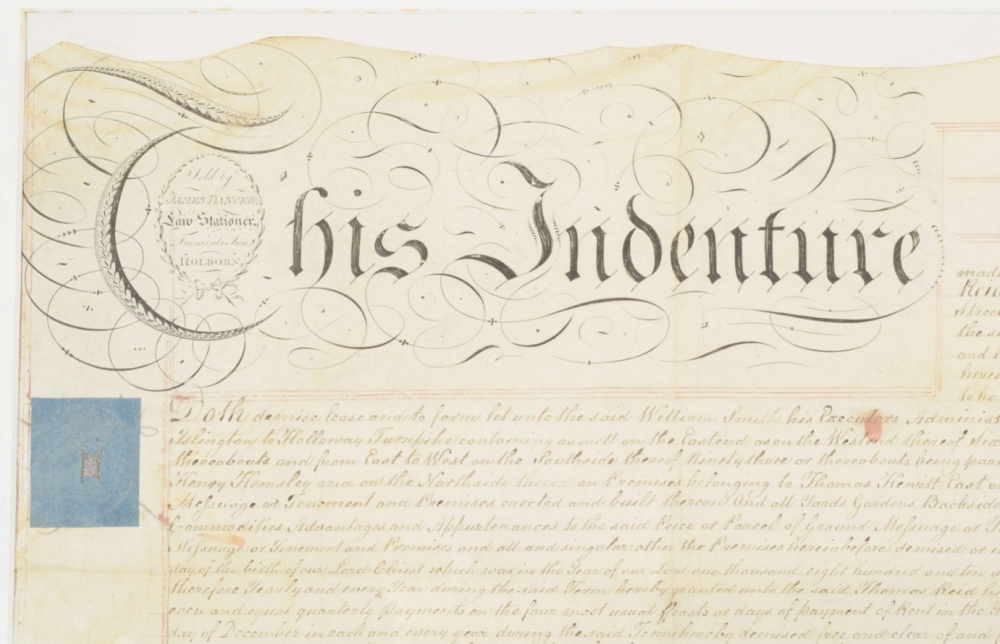 Sold by
JAMES DANCER
Law Stationer,
HOLBORN
This Indenture
made
Reid
Street
the s
and
hered
to be
Doth demise lease and to farm let unto the said William Smith his Executors Adminis
Islington to Holloway Turnpike containing as well on the East end as on the West end thereof
thereabouts and from East to West on the South side thereof Ninety three or thereabouts being par
Henry Hemsley and on the North side thereof on Premises belonging to Thomas Hewitt East
Messuage or Tenement and Premises erected and built thereon And all Yards Gardens Backside
Commodities Advantages and Appurtenances to the said Piece or Parcel of Ground Messuage or
Messuage or Tenement and Premises and all and singular other the Premises hereinbefore demised or
day of the birth of our Lord Christ which was in the Year of our Lord one thousand eight hundred and ten
therefore Yearly and every Year during the said Term hereby granted unto the said Thomas Reid
even and equal quarterly payments on the four most usual ffeasts or days of payment of Rent in the
day of December in each and every year during the said Term hereby demised free and clear of and